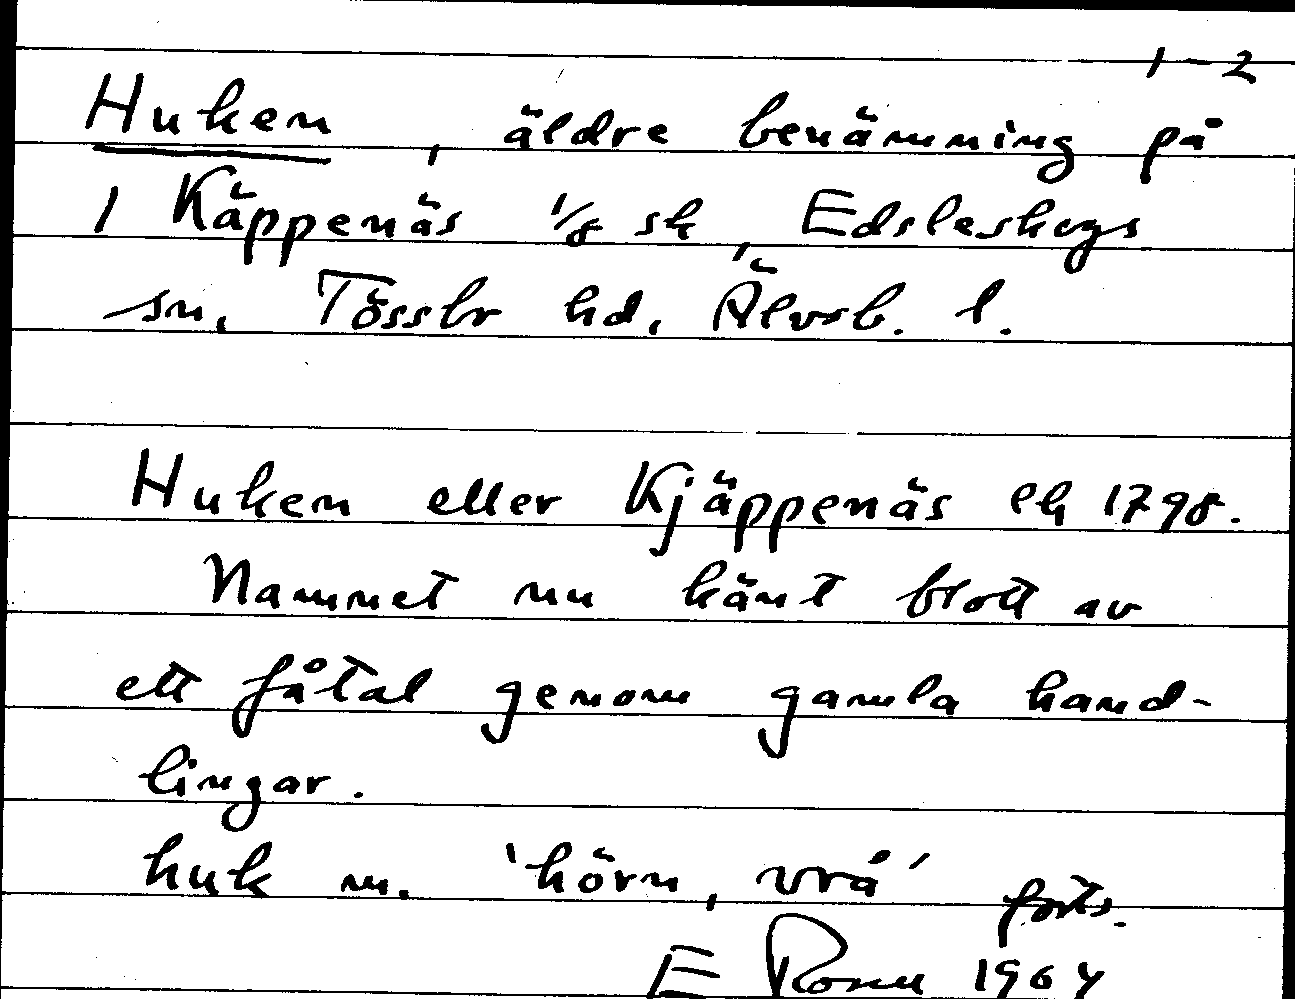 1-2
Huken, äldre benämning på
1 Käppenäs 1/8 sk, Edsleskogs
sn. Tössbr hd. Älvsb. l.
Huken eller Kjäppenäs eh 1798.
Namnet nu känt blott av
ett fåtal genom gamla hand-
lingar.
huk m. 'hörn, vrå' forts.
E 1964